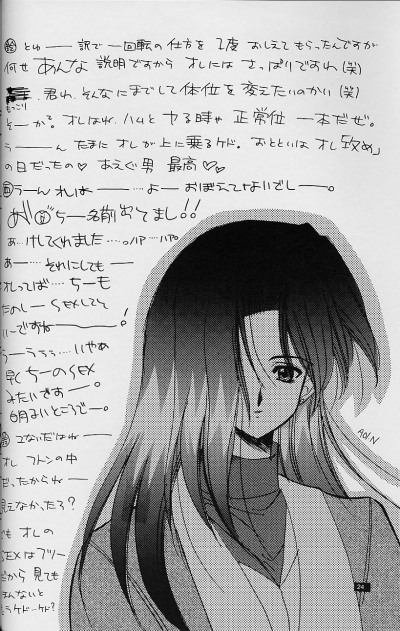 とゆ――訳で一回転の仕方を2度おしえてもらったんですが
何せあんな説明ですからオレにはさっぱりですわ(笑)
君わ、そんなにまでして体位を変えたいのかい(笑)
そーかぁ。オレはね、ハムとヤる時ゃ正常位一本だぜ。
うーんたまにオレが上に乗るケド。おとといはオレ「攻め」
の日だったの♡あえぐ男 最高♡♡
うーんオレは――…よーおぼえてよいでしー。
ちー名前出てまし!!
あ…けしてくれました…
あー…それにしても―
オレってば…ちーも
たのしーSEXしてて
いーですね――!
うーううぅ…いやぁ
早くちーのSEX
みたいですー。
明るいところでー。
こないだはね――
オレ フトンの中
だったからね―
見えなかったろ?
でも オレの
SEXはフリー
だから 見ても
AOI.N
24